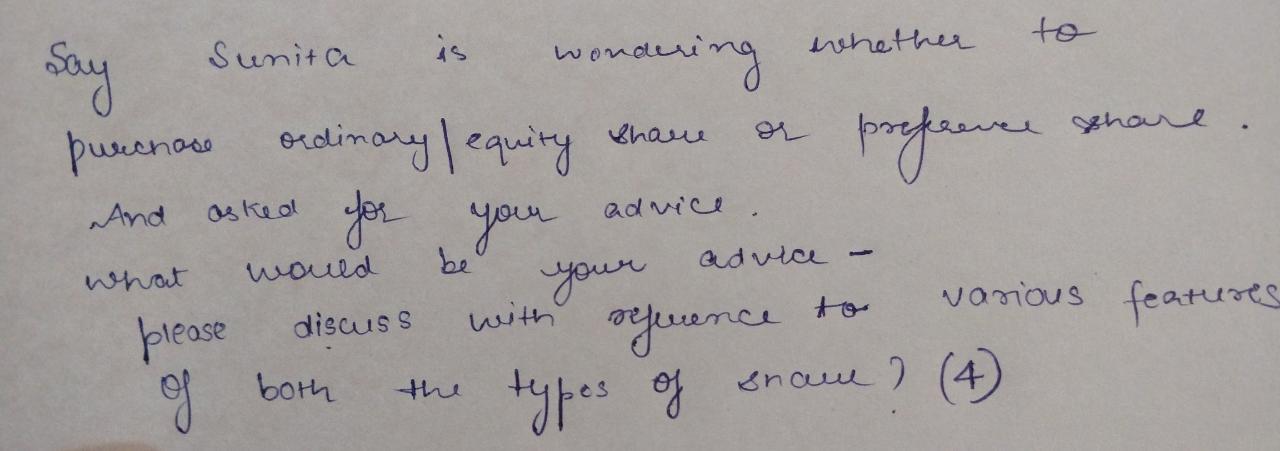 Say Sunita is wondering whether to
purchase ordinary/equity share or preference share.
And asked for your advice.
What would be your advice -
please discuss with reference to various features
of both the types of share? (4)